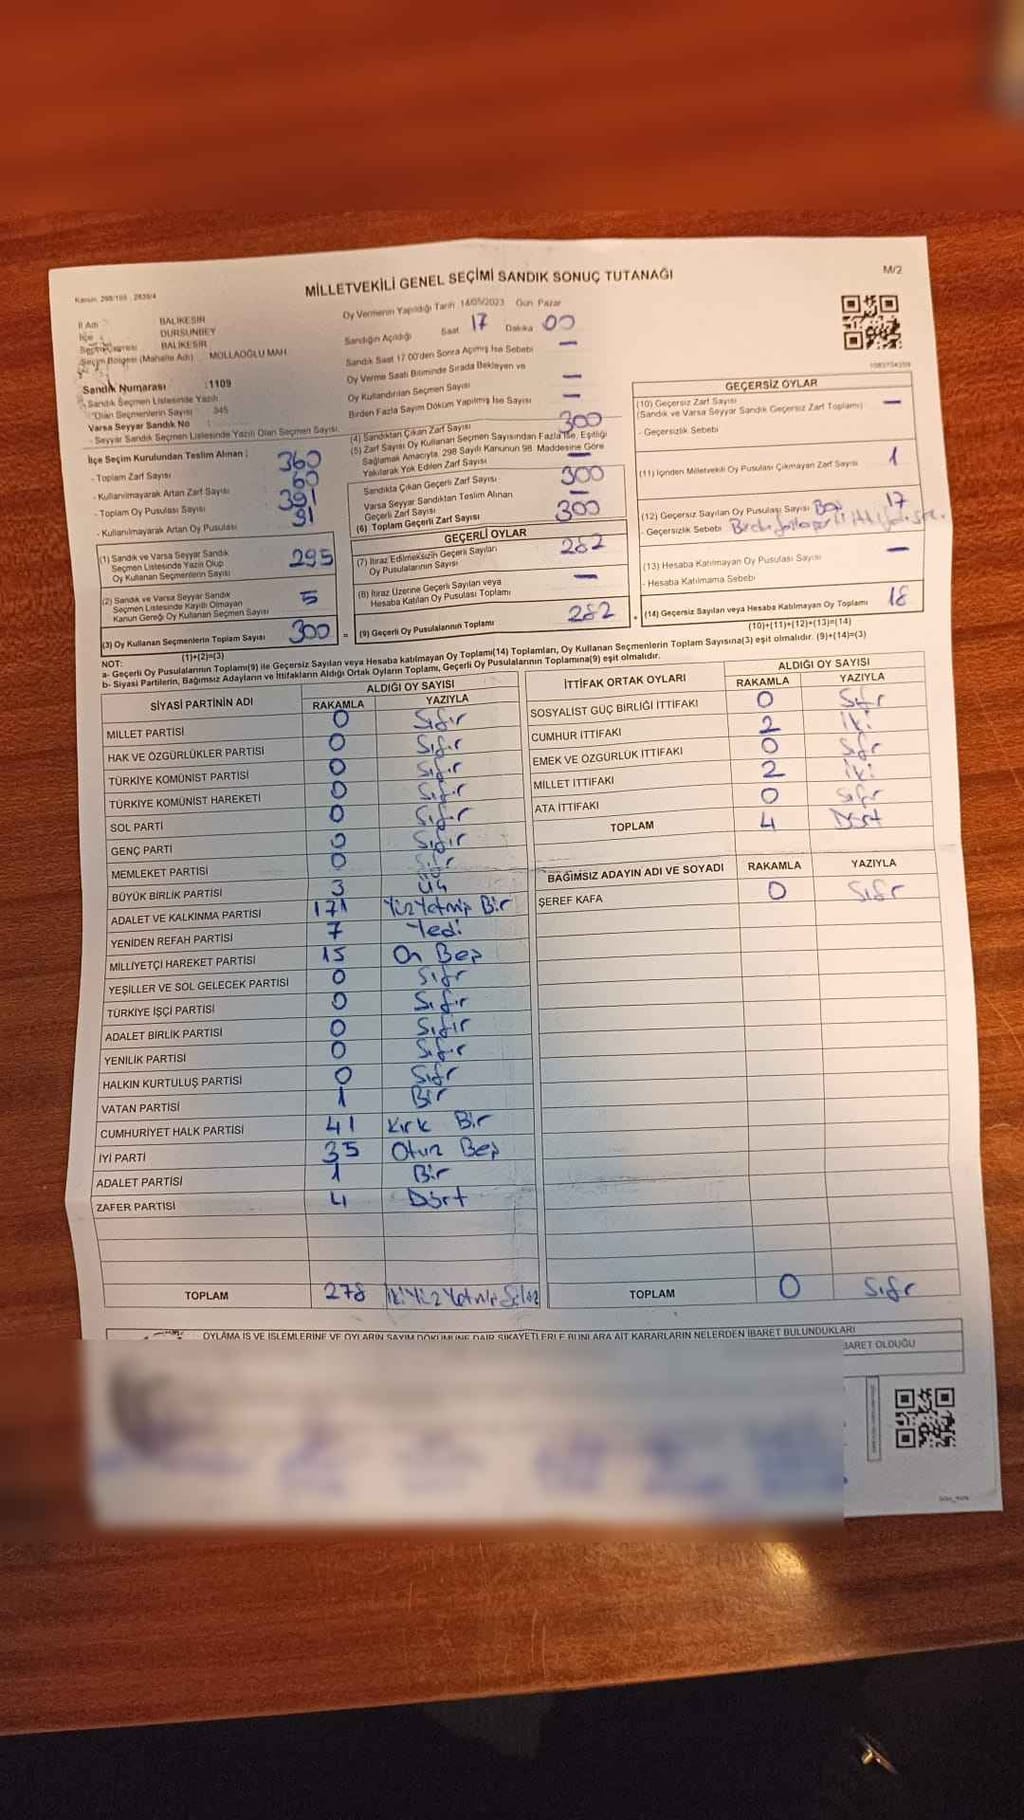 MİLLETVEKİLİ GENEL SEÇİMİ SANDIK SONUÇ TUTANAĞI
M/2
Oy Vermenin Yapıldığı Tarih 14/05/2023 Gün Pazar
İl Adı BALIKESİR
İlçe DURSUNBEY
BALIKESİR
Seçim Bölgesi (Mahalle Adı) MOLLAOĞLU MAH
Sandık Numarası : 1109
Sandık Seçmen Listesinde Yazılı
Olan Seçmenlerin Sayısı : 345
Varsa Seyyar Sandık No
- Seyyar Sandık Seçmen Listesinde Yazılı Olan Seçmen Sayısı:
Sandığın Açıldığı Saat 17 Dakika 00
Sandık Saat 17.00'den Sonra Açılmış İse Sebebi —
Oy Verme Saati Bitiminde Sırada Bekleyen ve
Oy Kullandırılan Seçmen Sayısı —
Birden Fazla Sayım Döküm Yapılmış İse Sayısı —
İlçe Seçim Kurulundan Teslim Alınan ;
- Toplam Zarf Sayısı 360
- Kullanılmayarak Artan Zarf Sayısı 60
- Toplam Oy Pusulası Sayısı 391
- Kullanılmayarak Artan Oy Pusulası 91
(1) Sandık ve Varsa Seyyar Sandık
Seçmen Listesinde Yazılı Olup
Oy Kullanan Seçmenlerin Sayısı 295
(2) Sandık ve Varsa Seyyar Sandık
Seçmen Listesinde Kayıtlı Olmayan
Kanun Gereği Oy Kullanan Seçmen Sayısı 5
(3) Oy Kullanan Seçmenlerin Toplam Sayısı 300
(1)+(2)=(3)
(4) Sandıktan Çıkan Zarf Sayısı 300
(5) Zarf Sayısı Oy Kullanan Seçmen Sayısından Fazla İse, Eşitliği
Sağlamak Amacıyla, 298 Sayılı Kanunun 98. Maddesine Göre
Yakılarak Yok Edilen Zarf Sayısı —
Sandıkta Çıkan Geçerli Zarf Sayısı 300
Varsa Seyyar Sandıktan Teslim Alınan
Geçerli Zarf Sayısı —
(6) Toplam Geçerli Zarf Sayısı 300
GEÇERLİ OYLAR
(7) İtiraz Edilmeksizin Geçerli Sayılan
Oy Pusulalarının Sayısı 282
(8) İtiraz Üzerine Geçerli Sayılan veya
Hesaba Katılan Oy Pusulası Toplamı —
= (9) Geçerli Oy Pusulalarının Toplamı 282
GEÇERSİZ OYLAR
(10) Geçersiz Zarf Sayısı —
(Sandık ve Varsa Seyyar Sandık Geçersiz Zarf Toplamı)
- Geçersizlik Sebebi
(11) İçinden Milletvekili Oy Pusulası Çıkmayan Zarf Sayısı 1
(12) Geçersiz Sayılan Oy Pusulası Sayısı 17
- Geçersizlik Sebebi
(13) Hesaba Katılmayan Oy Pusulası Sayısı —
- Hesaba Katılmama Sebebi
+ (14) Geçersiz Sayılan veya Hesaba Katılmayan Oy Toplamı 18
(10)+(11)+(12)+(13)=(14)
NOT:
a- Geçerli Oy Pusulalarının Toplamı(9) ile Geçersiz Sayılan veya Hesaba katılmayan Oy Toplamı(14) Toplamları, Oy Kullanan Seçmenlerin Toplam Sayısına(3) eşit olmalıdır. (9)+(14)=(3)
b- Siyasi Partilerin, Bağımsız Adayların ve İttifakların Aldığı Ortak Oyların Toplamı, Geçerli Oy Pusulalarının Toplamına(9) eşit olmalıdır.
SİYASİ PARTİNİN ADI ALDIĞI OY SAYISI
RAKAMLA YAZIYLA
MİLLET PARTİSİ 0 Sıfır
HAK VE ÖZGÜRLÜKLER PARTİSİ 0 Sıfır
TÜRKİYE KOMÜNİST PARTİSİ 0 Sıfır
TÜRKİYE KOMÜNİST HAREKETİ 0 Sıfır
SOL PARTİ 0 Sıfır
GENÇ PARTİ 0 Sıfır
MEMLEKET PARTİSİ 0 Sıfır
BÜYÜK BİRLİK PARTİSİ 3 Üç
ADALET VE KALKINMA PARTİSİ 171 Yüz Yetmiş Bir
YENİDEN REFAH PARTİSİ 7 Yedi
MİLLİYETÇİ HAREKET PARTİSİ 15 On Beş
YEŞİLLER VE SOL GELECEK PARTİSİ 0 Sıfır
TÜRKİYE İŞÇİ PARTİSİ 0 Sıfır
ADALET BİRLİK PARTİSİ 0 Sıfır
YENİLİK PARTİSİ 0 Sıfır
HALKIN KURTULUŞ PARTİSİ 0 Sıfır
VATAN PARTİSİ 1 Bir
CUMHURİYET HALK PARTİSİ 41 Kırk Bir
İYİ PARTİ 35 Otuz Beş
ADALET PARTİSİ 1 Bir
ZAFER PARTİSİ 4 Dört
TOPLAM 278 İki Yüz Yetmiş Sekiz
İTTİFAK ORTAK OYLARI ALDIĞI OY SAYISI
RAKAMLA YAZIYLA
SOSYALİST GÜÇ BİRLİĞİ İTTİFAKI 0 Sıfır
CUMHUR İTTİFAKI 2 İki
EMEK VE ÖZGÜRLÜK İTTİFAKI 0 Sıfır
MİLLET İTTİFAKI 2 İki
ATA İTTİFAKI 0 Sıfır
TOPLAM 4 Dört
BAĞIMSIZ ADAYIN ADI VE SOYADI RAKAMLA YAZIYLA
ŞEREF KAFA 0 Sıfır
TOPLAM 0 Sıfır
OYLAMA İŞ VE İŞLEMLERİNE VE OYLARIN SAYIM DÖKÜMÜNE DAİR ŞİKAYETLERLE BUNLARA AİT KARARLARIN NELERDEN İBARET BULUNDUKLARI
İBARET OLDUĞU